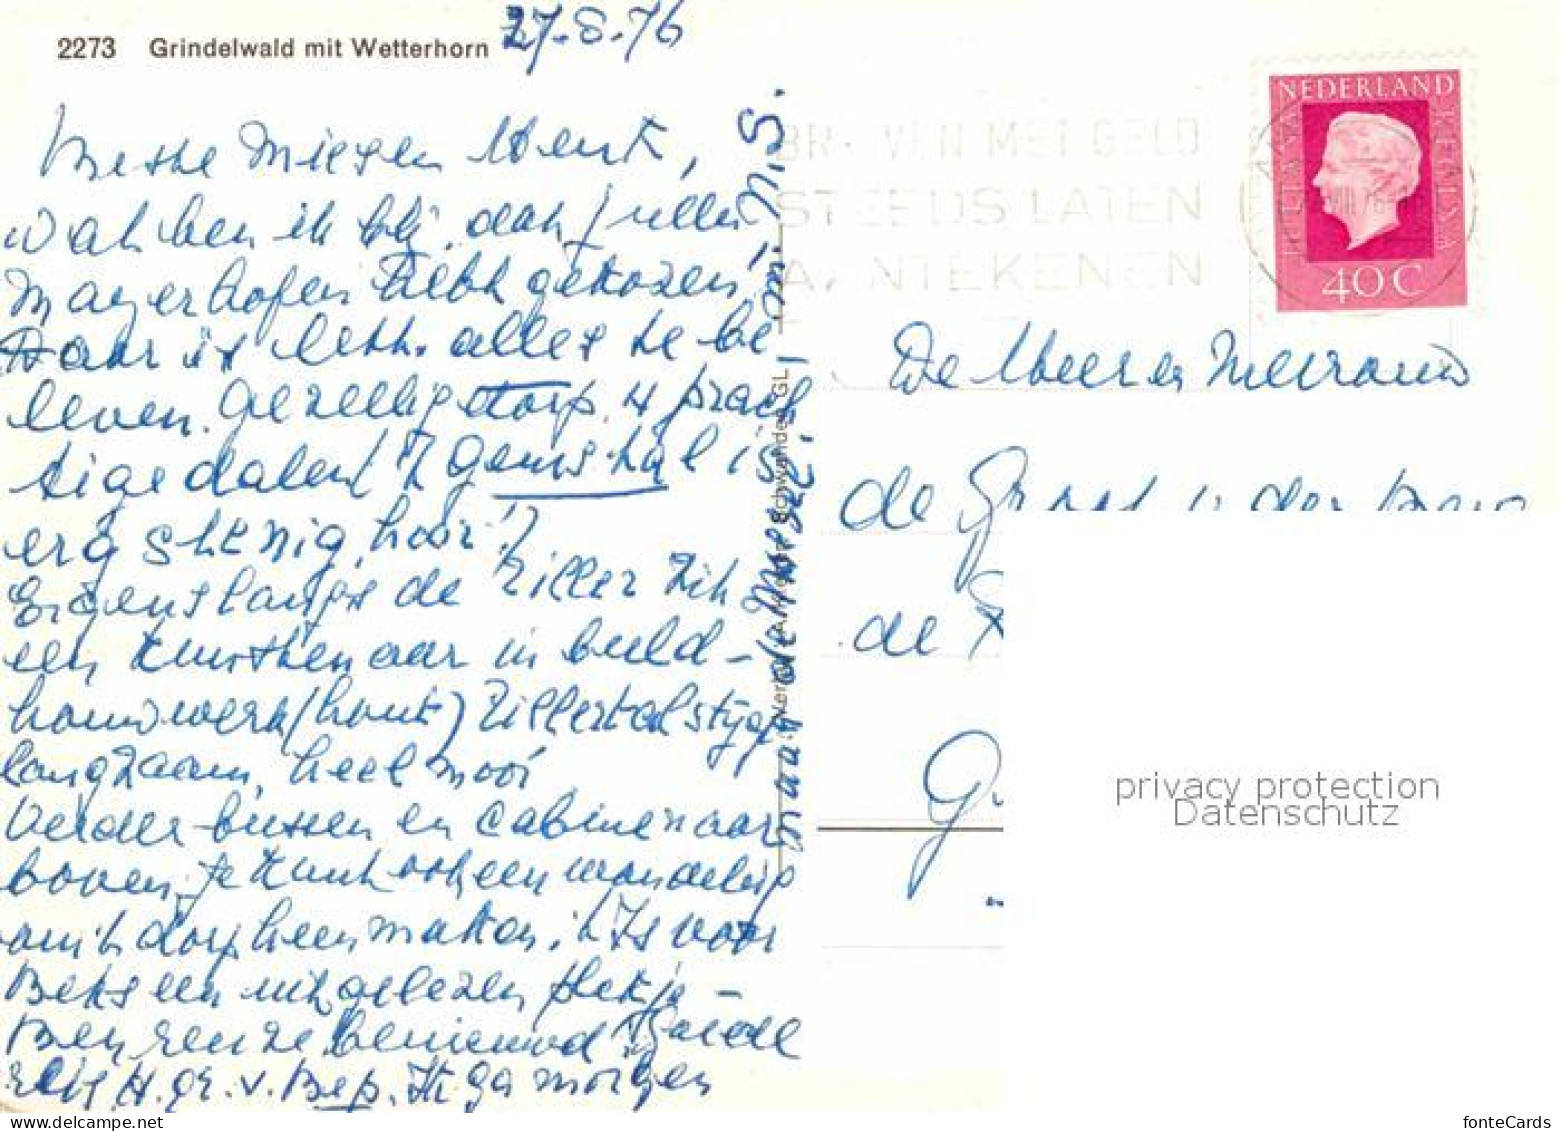 2273 Grindelwald mit Wetterhorn 27.8.76
Beste Miep en Henk,
Wat ben ik blij, dat jullie
Mayerhofen hebt gekozen!
Daar is echt alles te be
leven. Gezellig dorp. + prach
tige dalen ('t Gunstal is
erg stenig, hoor!)
Ergens langs de Ziller zit
een kunstenaar in beeld-
houwwerk (hout) Zillertal stijgt
langzaam, heel mooi
Verder bussen en cabine naar
boven. Je kunt ook een wandeling
om 't dorp heen maken. 't Is voor
Bets een uitgelezen plekje-
Ben reuze benieuwd! Goede
reis H. gr. v. Bep. Ik ga morgen
naar de Moezel, m. N.S.
BRIEVEN MET GELD
STEEDS LATEN
AANTEKENEN
NEDERLAND
40C
De Heer en Mevrouw
de
de
privacy protection
Datenschutz
delcampe.net
fonteCards